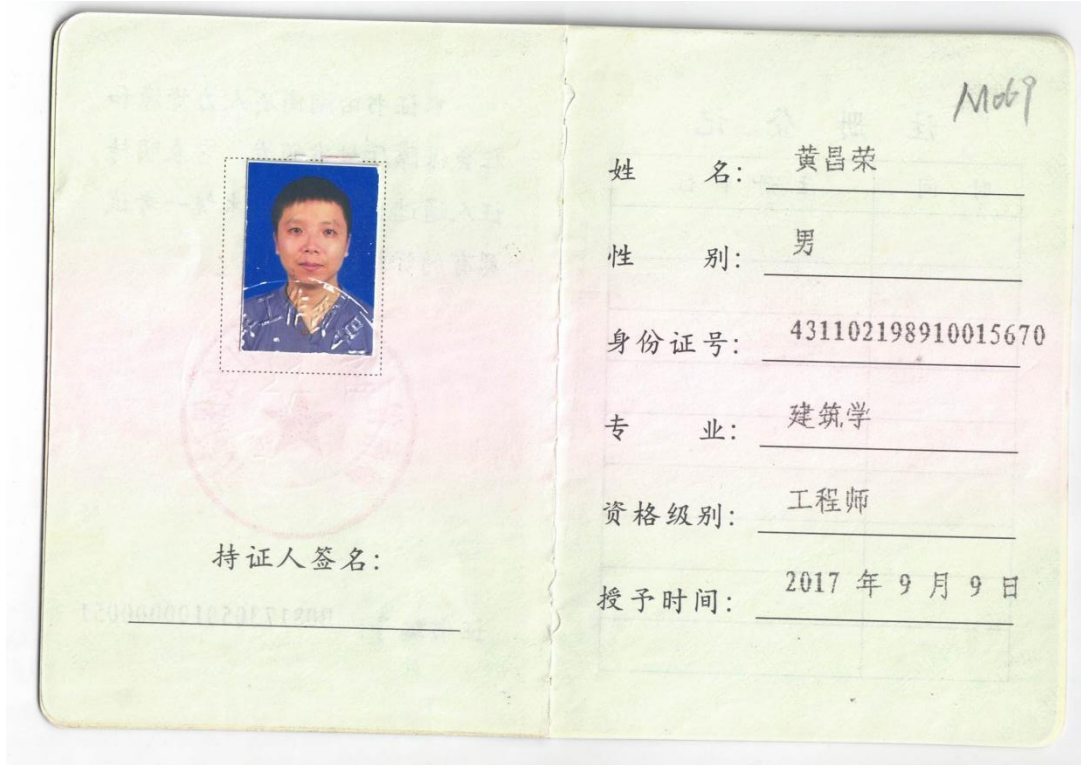 M069
姓 名: 黄昌荣
性 别: 男
身份证号: 431102198910015670
专 业: 建筑学
资格级别: 工程师
授予时间: 2017 年 9 月 9 日
持证人签名: